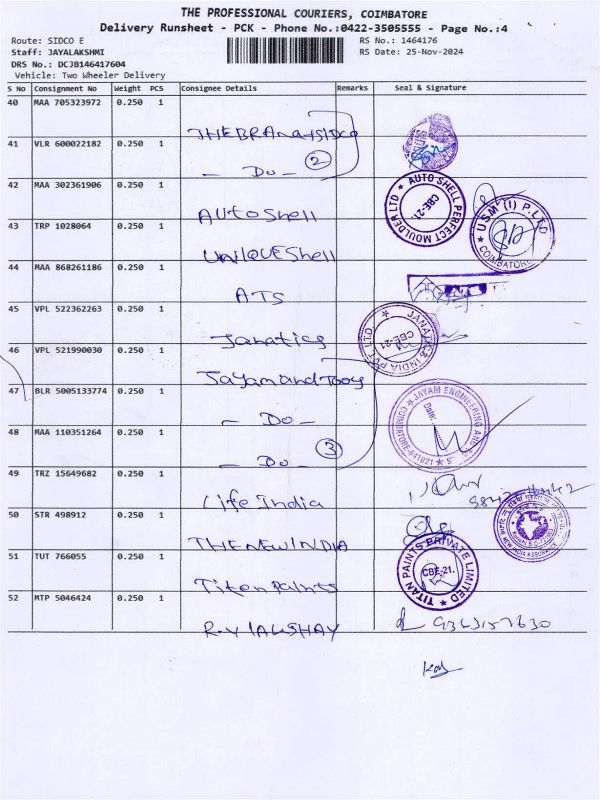 THE PROFESSIONAL COURIERS, COIMBATORE
Delivery Runsheet - PCK - Phone No.:0422-3505555 - Page No.:4
Route: SIDCO E
RS No.: 1464176
Staff: JAYALAKSHMI
RS Date: 25-Nov-2024
DRS No.: DCJB146417604
Vehicle: Two Wheeler Delivery
S No Consignment No Weight PCS Consignee Details Remarks Seal & Signature
40 MAA 705323972 0.250 1
41 VLR 600022182 0.250 1
— Do — 2
42 MAA 302361906 0.250 1
AUTO SHELL PERFECT MOULDER LTD CBE-21.
Auto Shell
43 TRP 1028064 0.250 1
U.S.M (I) P.LTD COIMBATORE
UNIQUE Shell
44 MAA 868261186 0.250 1
ATS
45 VPL 522362263 0.250 1
JANATICS INDIA PVT LTD. CBE-21
Janatics
46 VPL 521990030 0.250 1
47 BLR 5005133774 0.250 1
JAYAM ENGINEERING AND COIMBATORE-641021 Date:
— Do —
48 MAA 110351264 0.250 1
— Do — 3
49 TRZ 15649682 0.250 1
Life India
50 STR 498912 0.250 1
THE NEW INDIA
51 TUT 766055 0.250 1
TITAN PAINTS PRIVATE LIMITED CBE-21.
Titan Paints
52 MTP 5046424 0.250 1